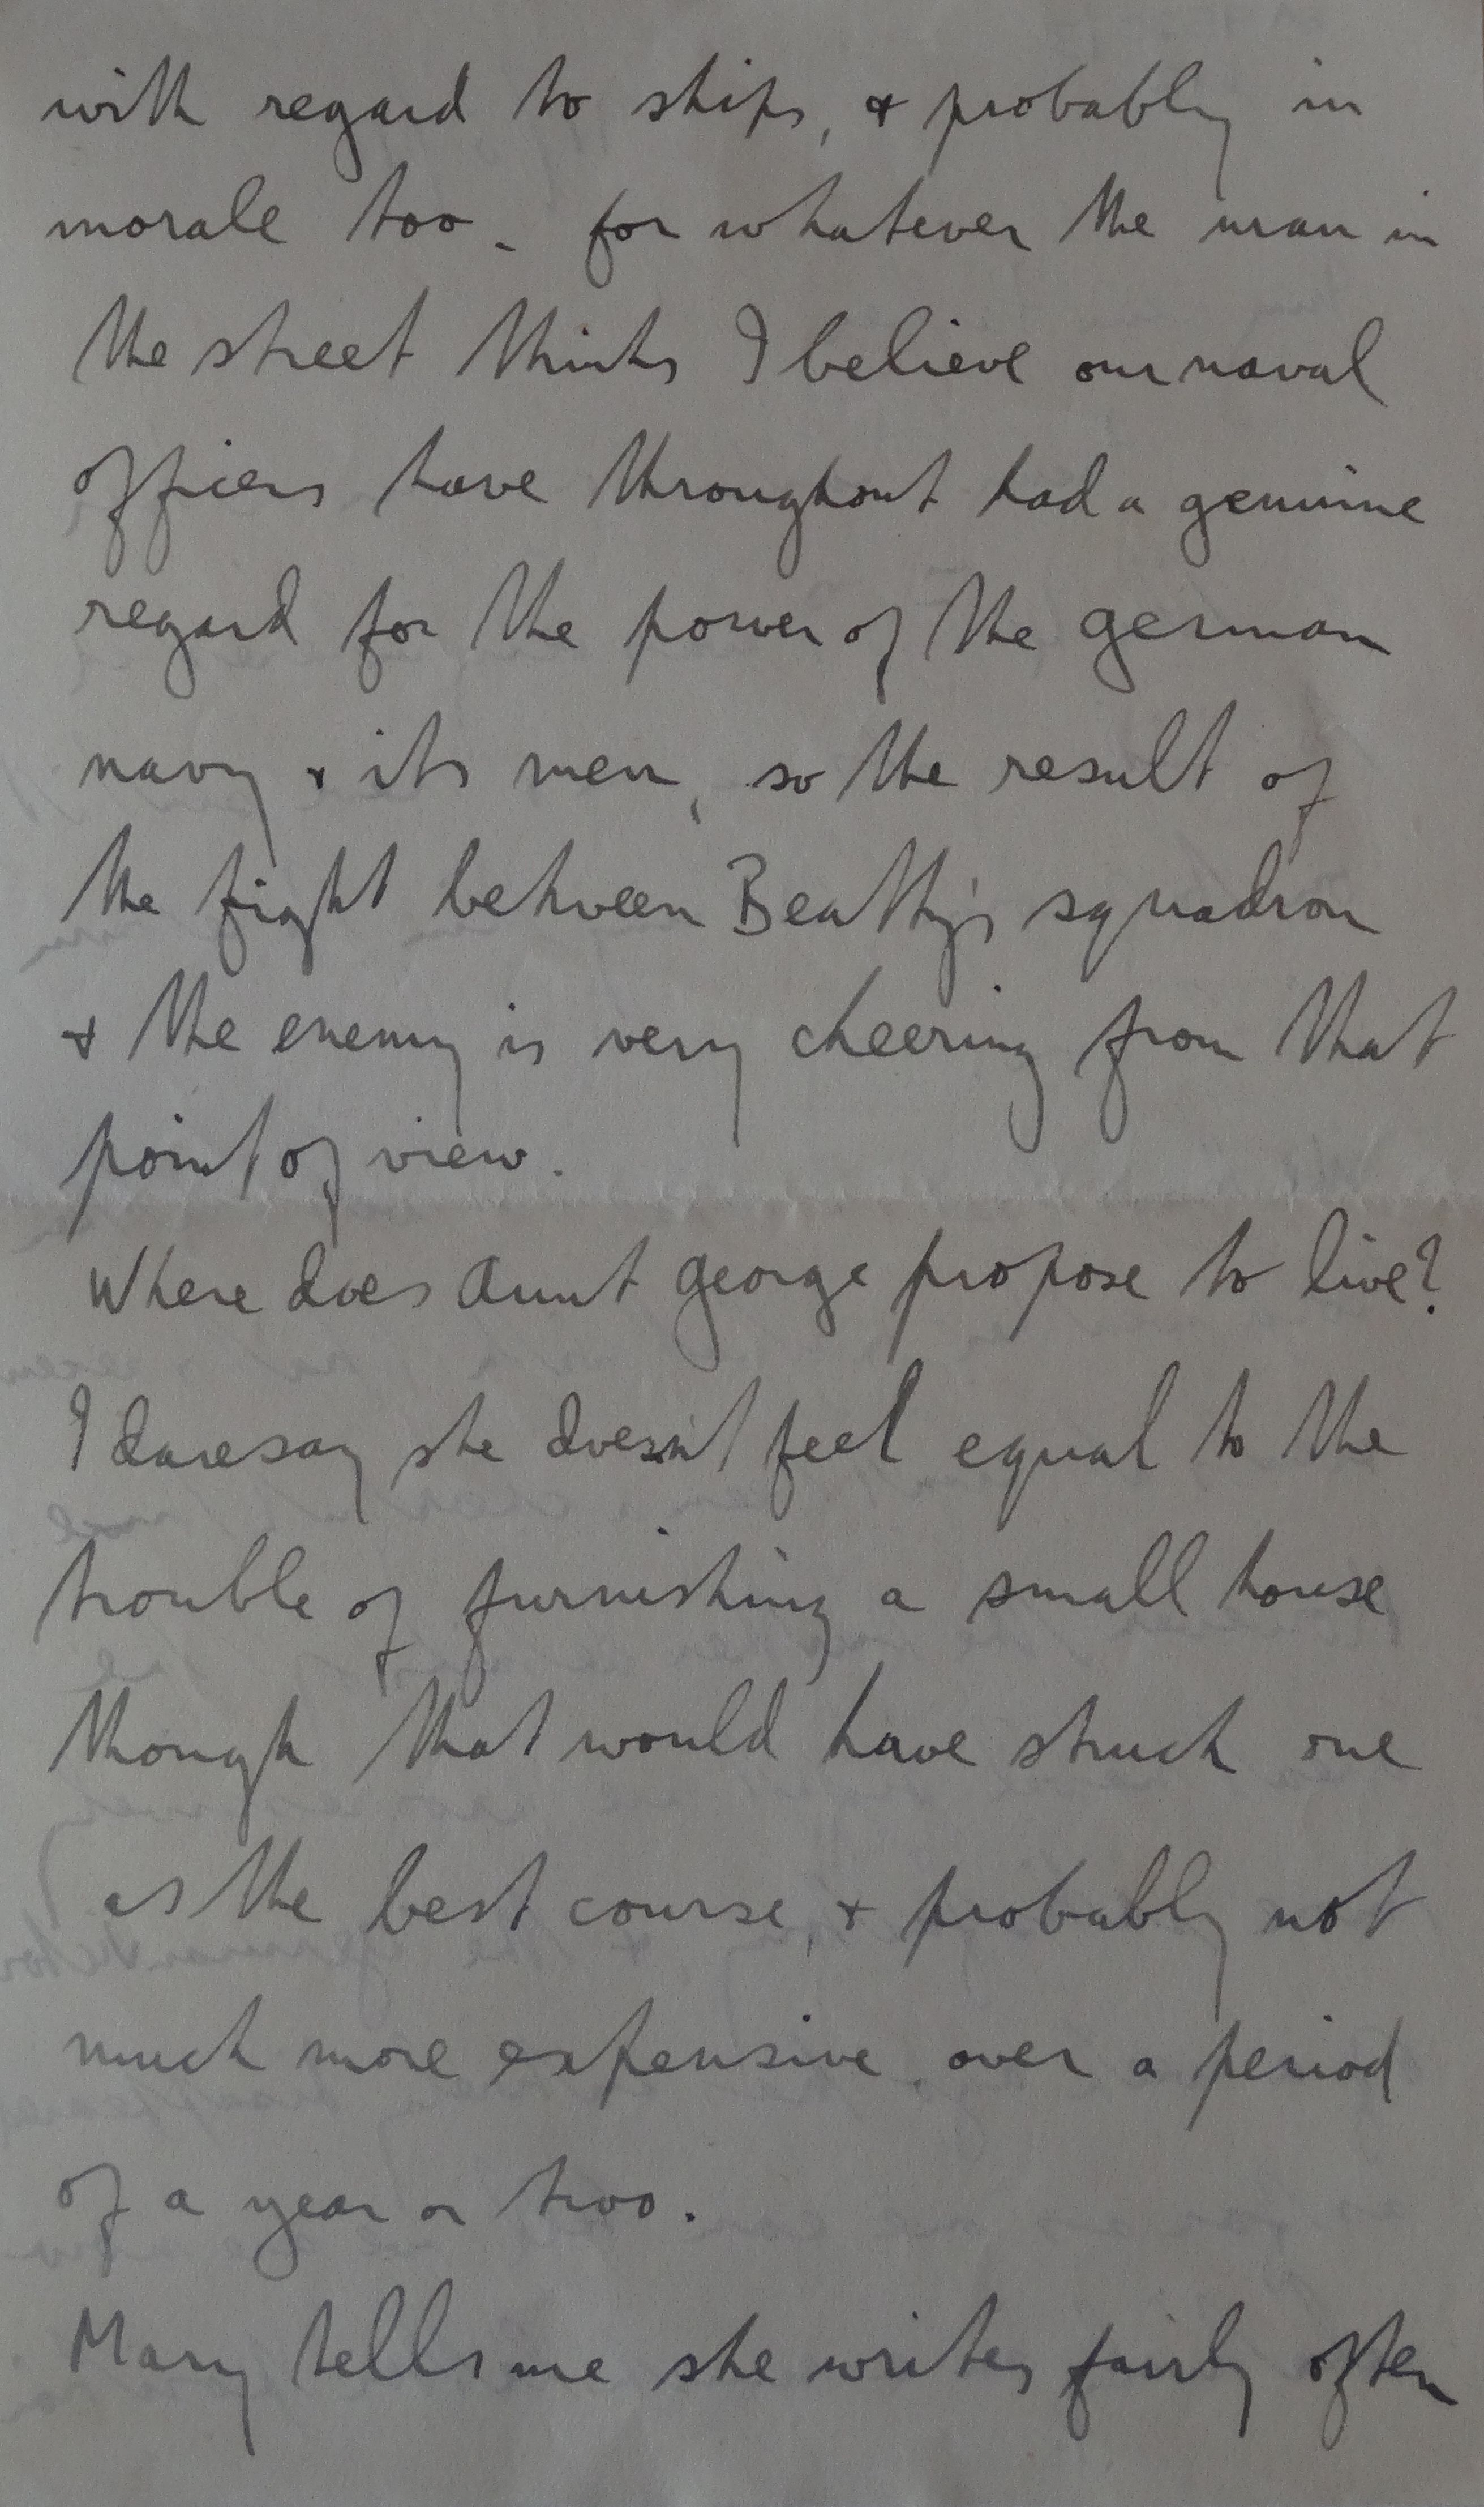 with regard to ships, & probably in
morale too - for whatever the man in
the street thinks I believe our naval
officers have throughout had a genuine
regard for the power of the german
navy & its men, so the result of
the fight between Beatty's squadron
& the enemy is very cheering from that
point of view.
Where does Aunt George propose to live?
I daresay she doesn't feel equal to the
trouble of furnishing a small house
though that would have struck one
as the best course, & probably not
much more expensive over a period
of a year or two.
Mary tells me she writes fairly often